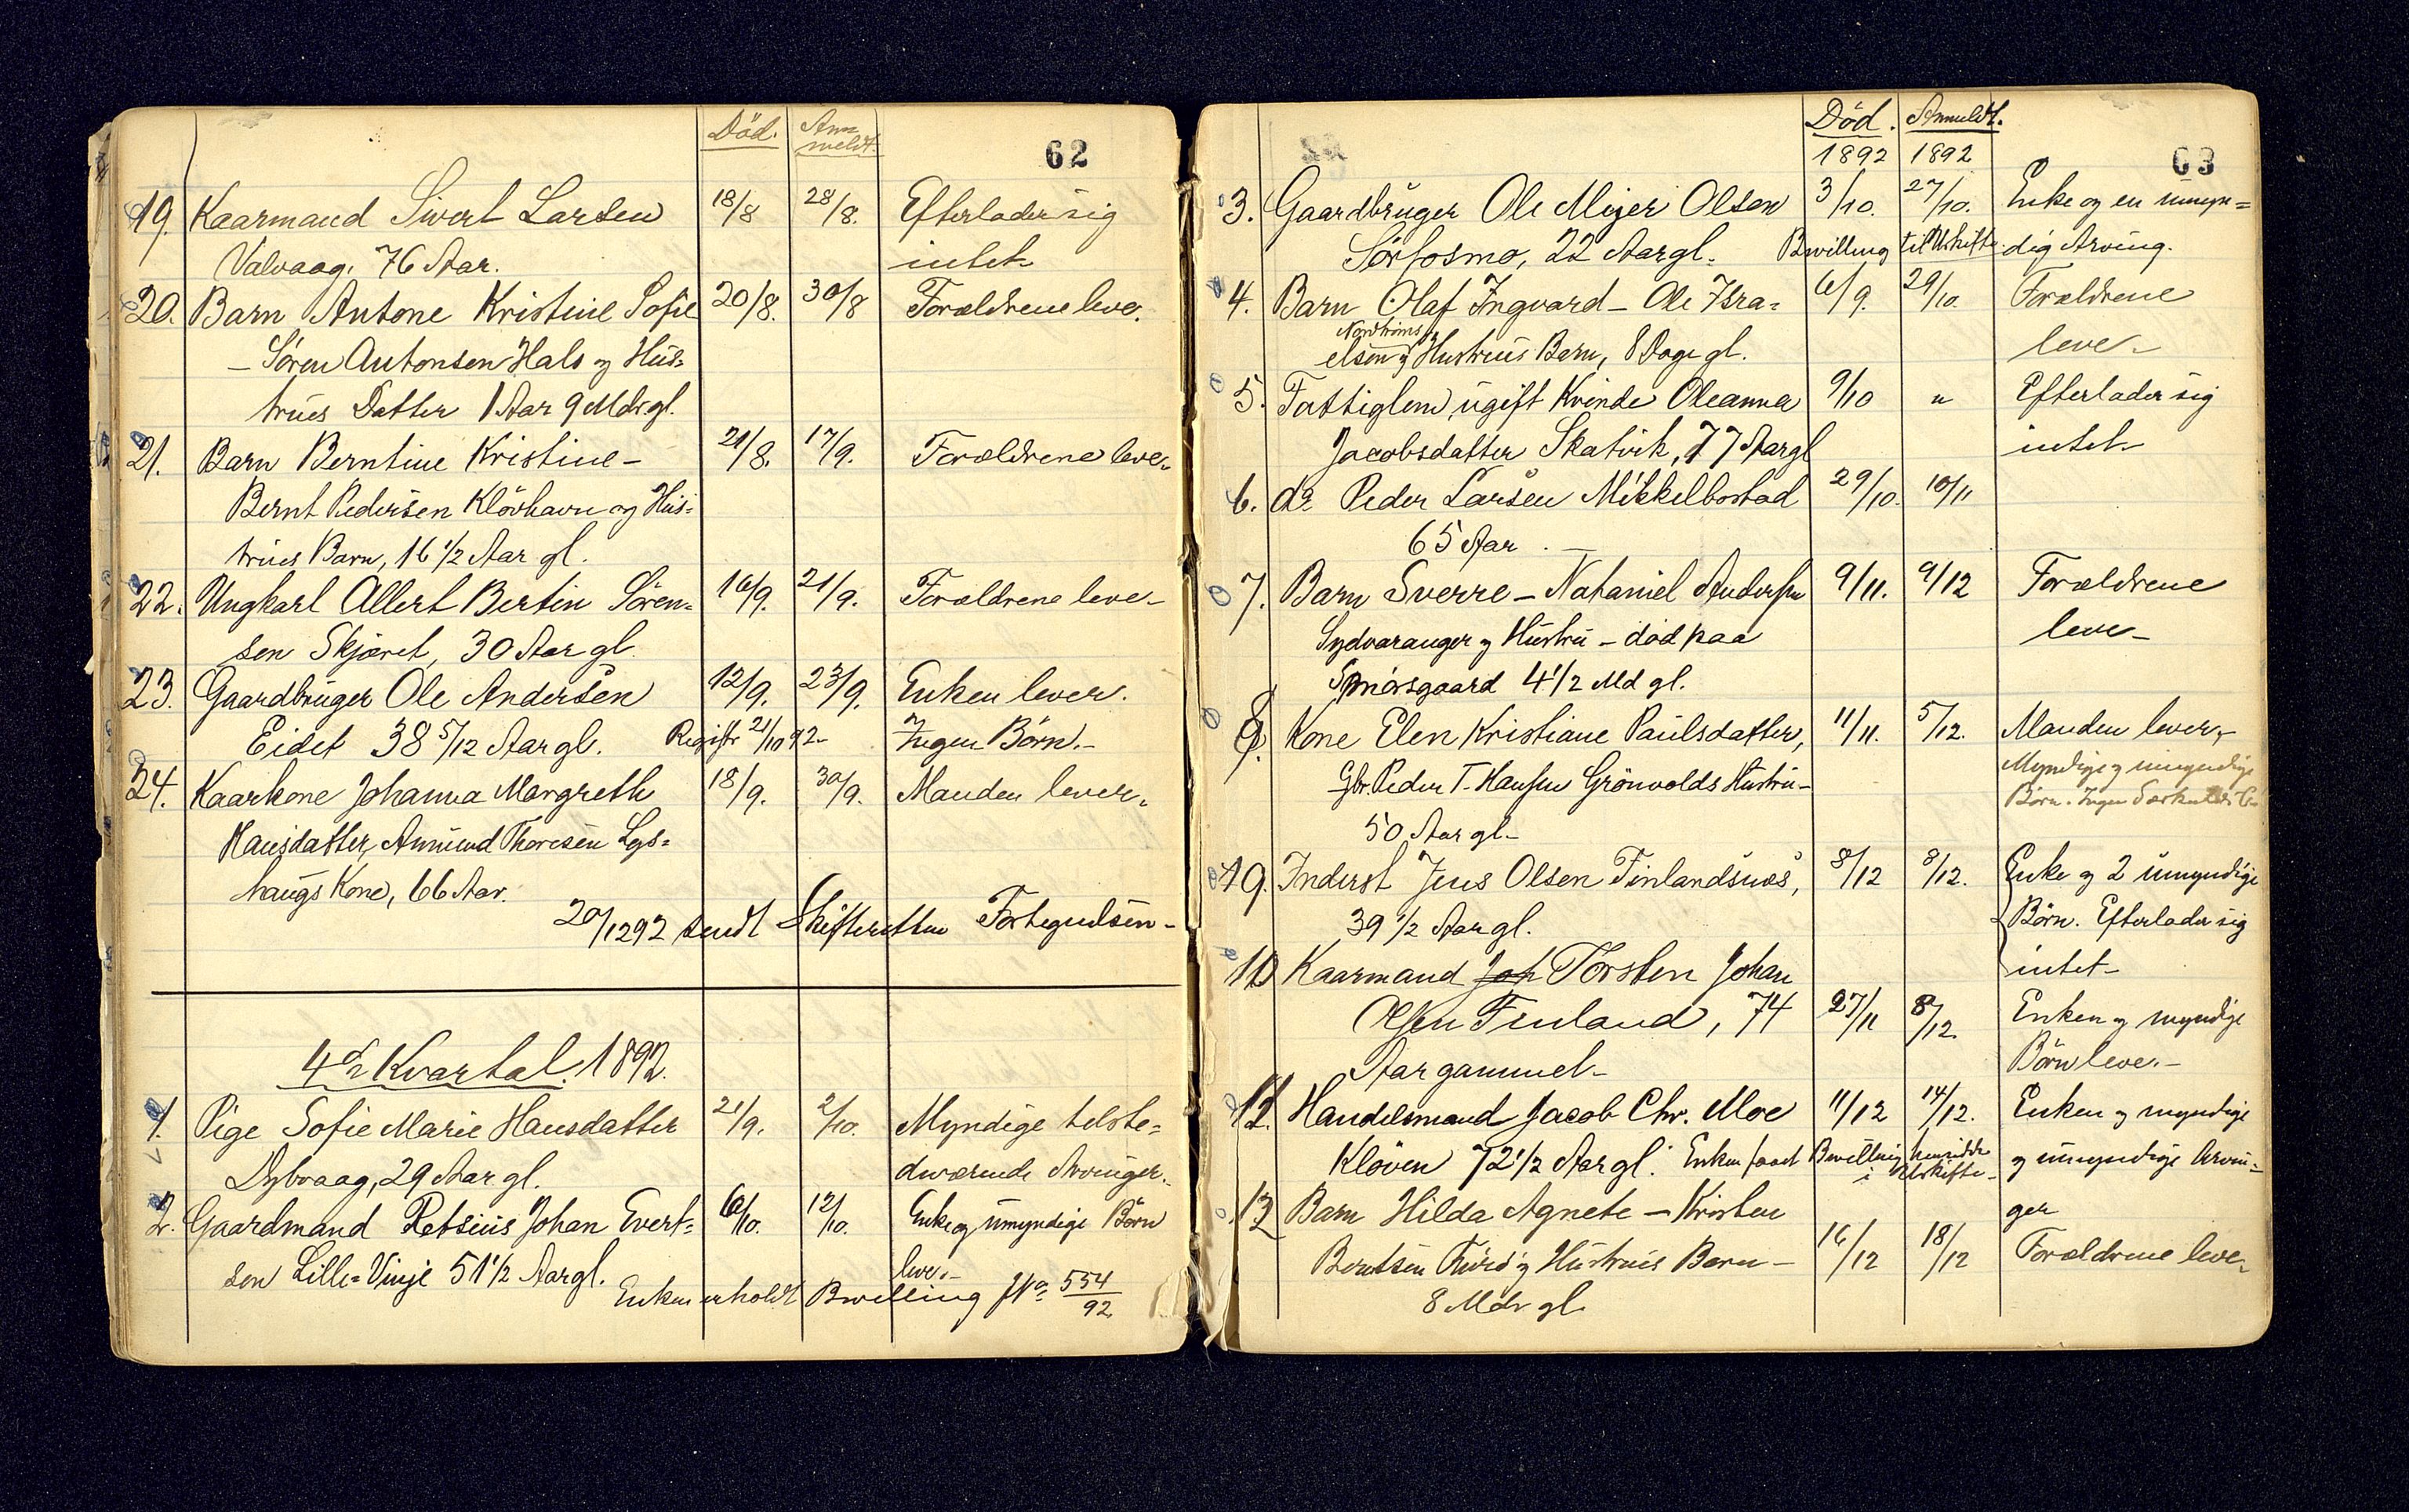 Død. An=
meldt.
62
19. Kaarmand Sivert Larsen 18/8 28/8. Efterlader sig
Valvaag. 76 Aar. intet
20. Barn Antone Kristine Sofie 20/8. 30/8 Forældrene leve.
– Sören Antonsen Hals og Hus=
trues Datter 1 Aar 9 Mdr. gl.
21. Barn Berntine Kristine – 21/8. 17/9. Forældrene leve.
Bernt Pedersen Klövhavn og Hus=
trues Barn, 16 1/2 Aar gl.
22. Ungkarl Allert Bertin Sören= 16/9. 21/9. Forældrene leve –
sen Skjæret, 30 Aar gl.
23. Gaardbruger Ole Andersen 12/9. 23/9. Enken lever.
Eidet 38 5/12 Aar gl. Registr 21/10 92 – Ingen Börn. –
24. Kaarkone Johanna Margreth 18/9. 30/9. Manden lever.
Hansdatter, Amund Thoresen Lys=
haugs Kone, 66 Aar.
20/12 92 sendt Skifteretten Fortegnelsen –
4de Kvartal. 1892.
1. Pige Sofie Marie Hansdatter 21/9. 2/10. Myndige tilste=
Dybvaag, 29 Aar gl. deværende Arvinger.
2. Gaardmand Petsius Johan Evert= 6/10. 12/10. Enke og umyndige Börn
sen Lille=Vinje 51 1/2 Aar gl. leve. –
Enken erholdt Bevilling No 554/92
Død. Anmeldt.
1892 1892
63
3. Gaardbruger Ole Mejer Olsen 3/10. 27/10. Enke og en umyn=
Sörfosmo, 22 Aar gl. Bevilling til Uskifte. dig Arving.
4. Barn Olaf Ingvard – Ole Isra= 6/9. 29/10. Forældrene
elsen og Hustrues Barn, 8 Dage gl. leve –
5. Fattiglem, ugift Kvinde Oleanna 9/10 " Efterlader sig
Jacobsdatter Skatvik, 77 Aar gl intet –
6. do Peder Larsen Mikkelbostad 29/10. 10/11
65 Aar. –
7. Barn Sverre – Nathaniel Andersen 9/11. 9/12 Forældrene
Sydvaranger og Hustru – død paa leve –
gaard 4 1/2 Md gl.
8. Kone Elen Kristiane Paulsdatter, 11/11. 5/12. Manden lever –
Gbr. Peder T. Hansen Grönvolds Hustru – Myndige og umyndige
Börn. Ingen
50 Aar gl –
9. Inderst Jens Olsen Finlandsnæs, 8/12 8/12. Enke og 2 umyndige
39 1/2 Aar gl. Börn. Efterlader sig
intet –
10 Kaarmand Joh Torsten Johan
Olsen Finland, 74 27/11 8/12. Enken og myndige
Aar gammel – Börn leve. –
11. Handelsmand Jacob Chr. Moe 11/12 14/12. Enken og myndige
Klöven 72 1/2 Aar gl. Enken faaet Bevilling hensidde og umyndige Arvin=
i Uskifte – ger
12 Barn Hilda Agnete – Kristen
Berntsen og Hustrues Barn – 16/12 18/12 Forældrene leve.
8 Mdr gl.